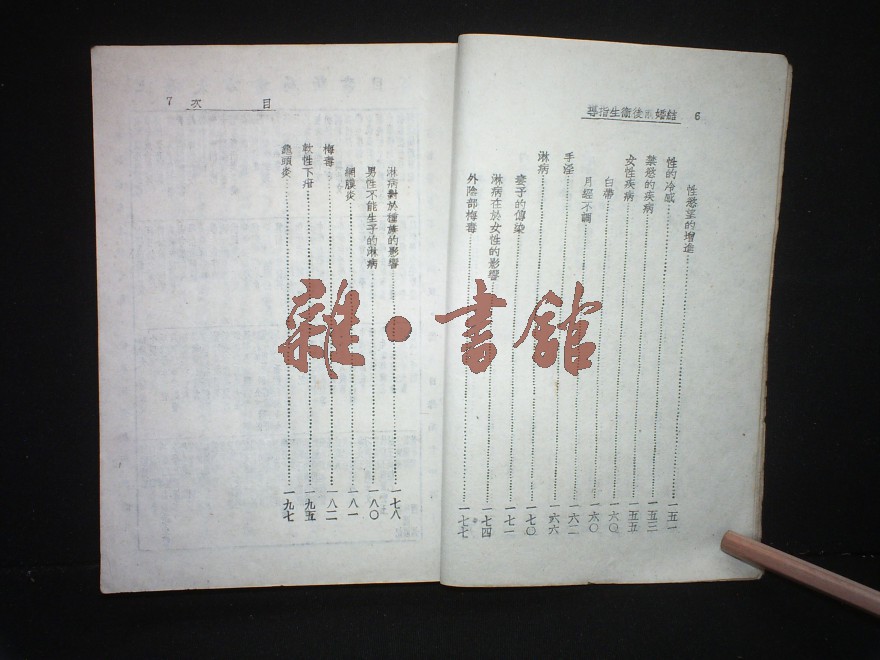 6 結婚前後衛生指導
性慾望的增進……一五一
性的冷感……一五三
禁慾的疾病……一五五
女性疾病……一六〇
白帶……一六〇
月經不調……一六二
手淫……一六六
淋病……一七〇
妻子的傳染……一七一
淋病在於女性的影響……一七四
外陰部梅毒……一七七
目次 7
淋病對於種族的影響……一七八
男性不能生子的淋病……一八〇
網膜炎……一八一
梅毒……一八二
軟性下疳……一九五
龜頭炎……一九七
雜·書館